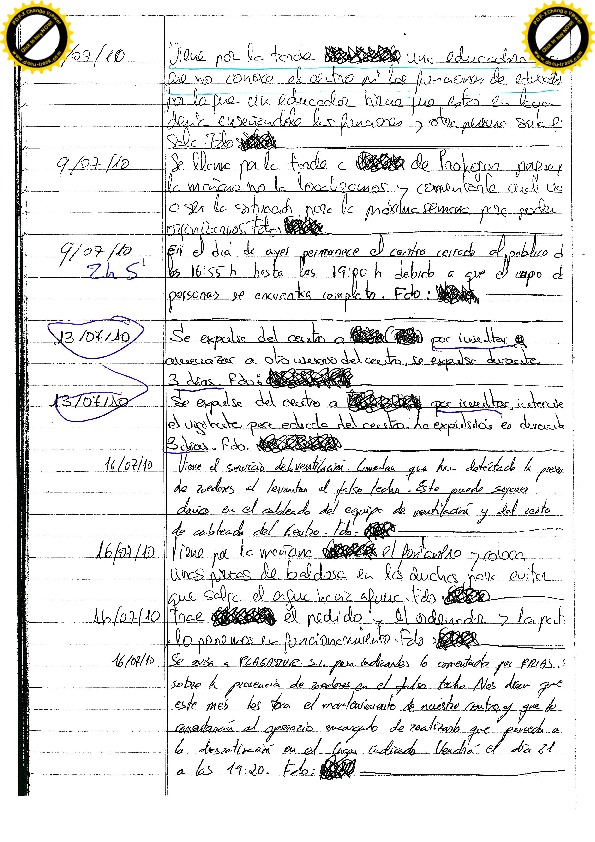 /07/10 Viene por la tarde una educadora
que no conoce el centro ni las funciones de educador
por lo que un educador tiene que estar en
enseñándole las funciones y otra persona sola en
Sala. Fdo:
9/07/10 Se llama por la tarde a de Prosegur porque
la mañana no la localizamos y comentarle cual va
a ser la situación para la próxima semana para poder
organizarnos. Fdo:
9/07/10 En el día de ayer permanece el centro cerrado al público d
2h 5' las 16:55 h hasta las 19:00 h debido a que el cupo d
personas se encuentra completo. Fdo:
13/07/10 Se expulsa del centro a por insultar y
amenazar a otro usuario del centro, se expulsa durante
3 días. Fdo:
13/07/10 Se expulsa del centro a por insultar, interviene
el vigilante para echarlo del centro. La expulsión es durante
3 días. Fdo.
16/07/10 Viene el servicio de ventilación. Comentan que han detectado la presen
de roedores al levantar el falso techo. Esto puede generar
daños en el cableado del equipo de ventilación y del resto
de cableado del Centro. Fdo:
16/07/10 Viene por la mañana el fontanero y coloca
unas piezas de baldosa en las duchas para evitar
que salga el agua hacia afuera. Fdo:
16/07/10 Trae el pedido y el ordenador y
lo ponemos en funcionamiento. Fdo:
16/07/10 Se avisa a S.L. para indicarles lo comentado por
sobre la presencia de roedores en el falso techo. Nos dicen que
este mes les toca el mantenimiento de nuestro centro y que le
comunicarán al operario encargado de realizarlo que proceda a
la desratización en el lugar indicado. Vendrá el día 21
a las 19:20. Fdo: